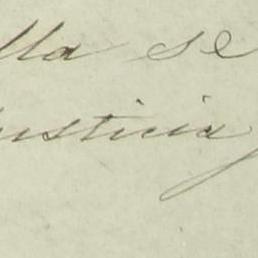 lla se
usticia,